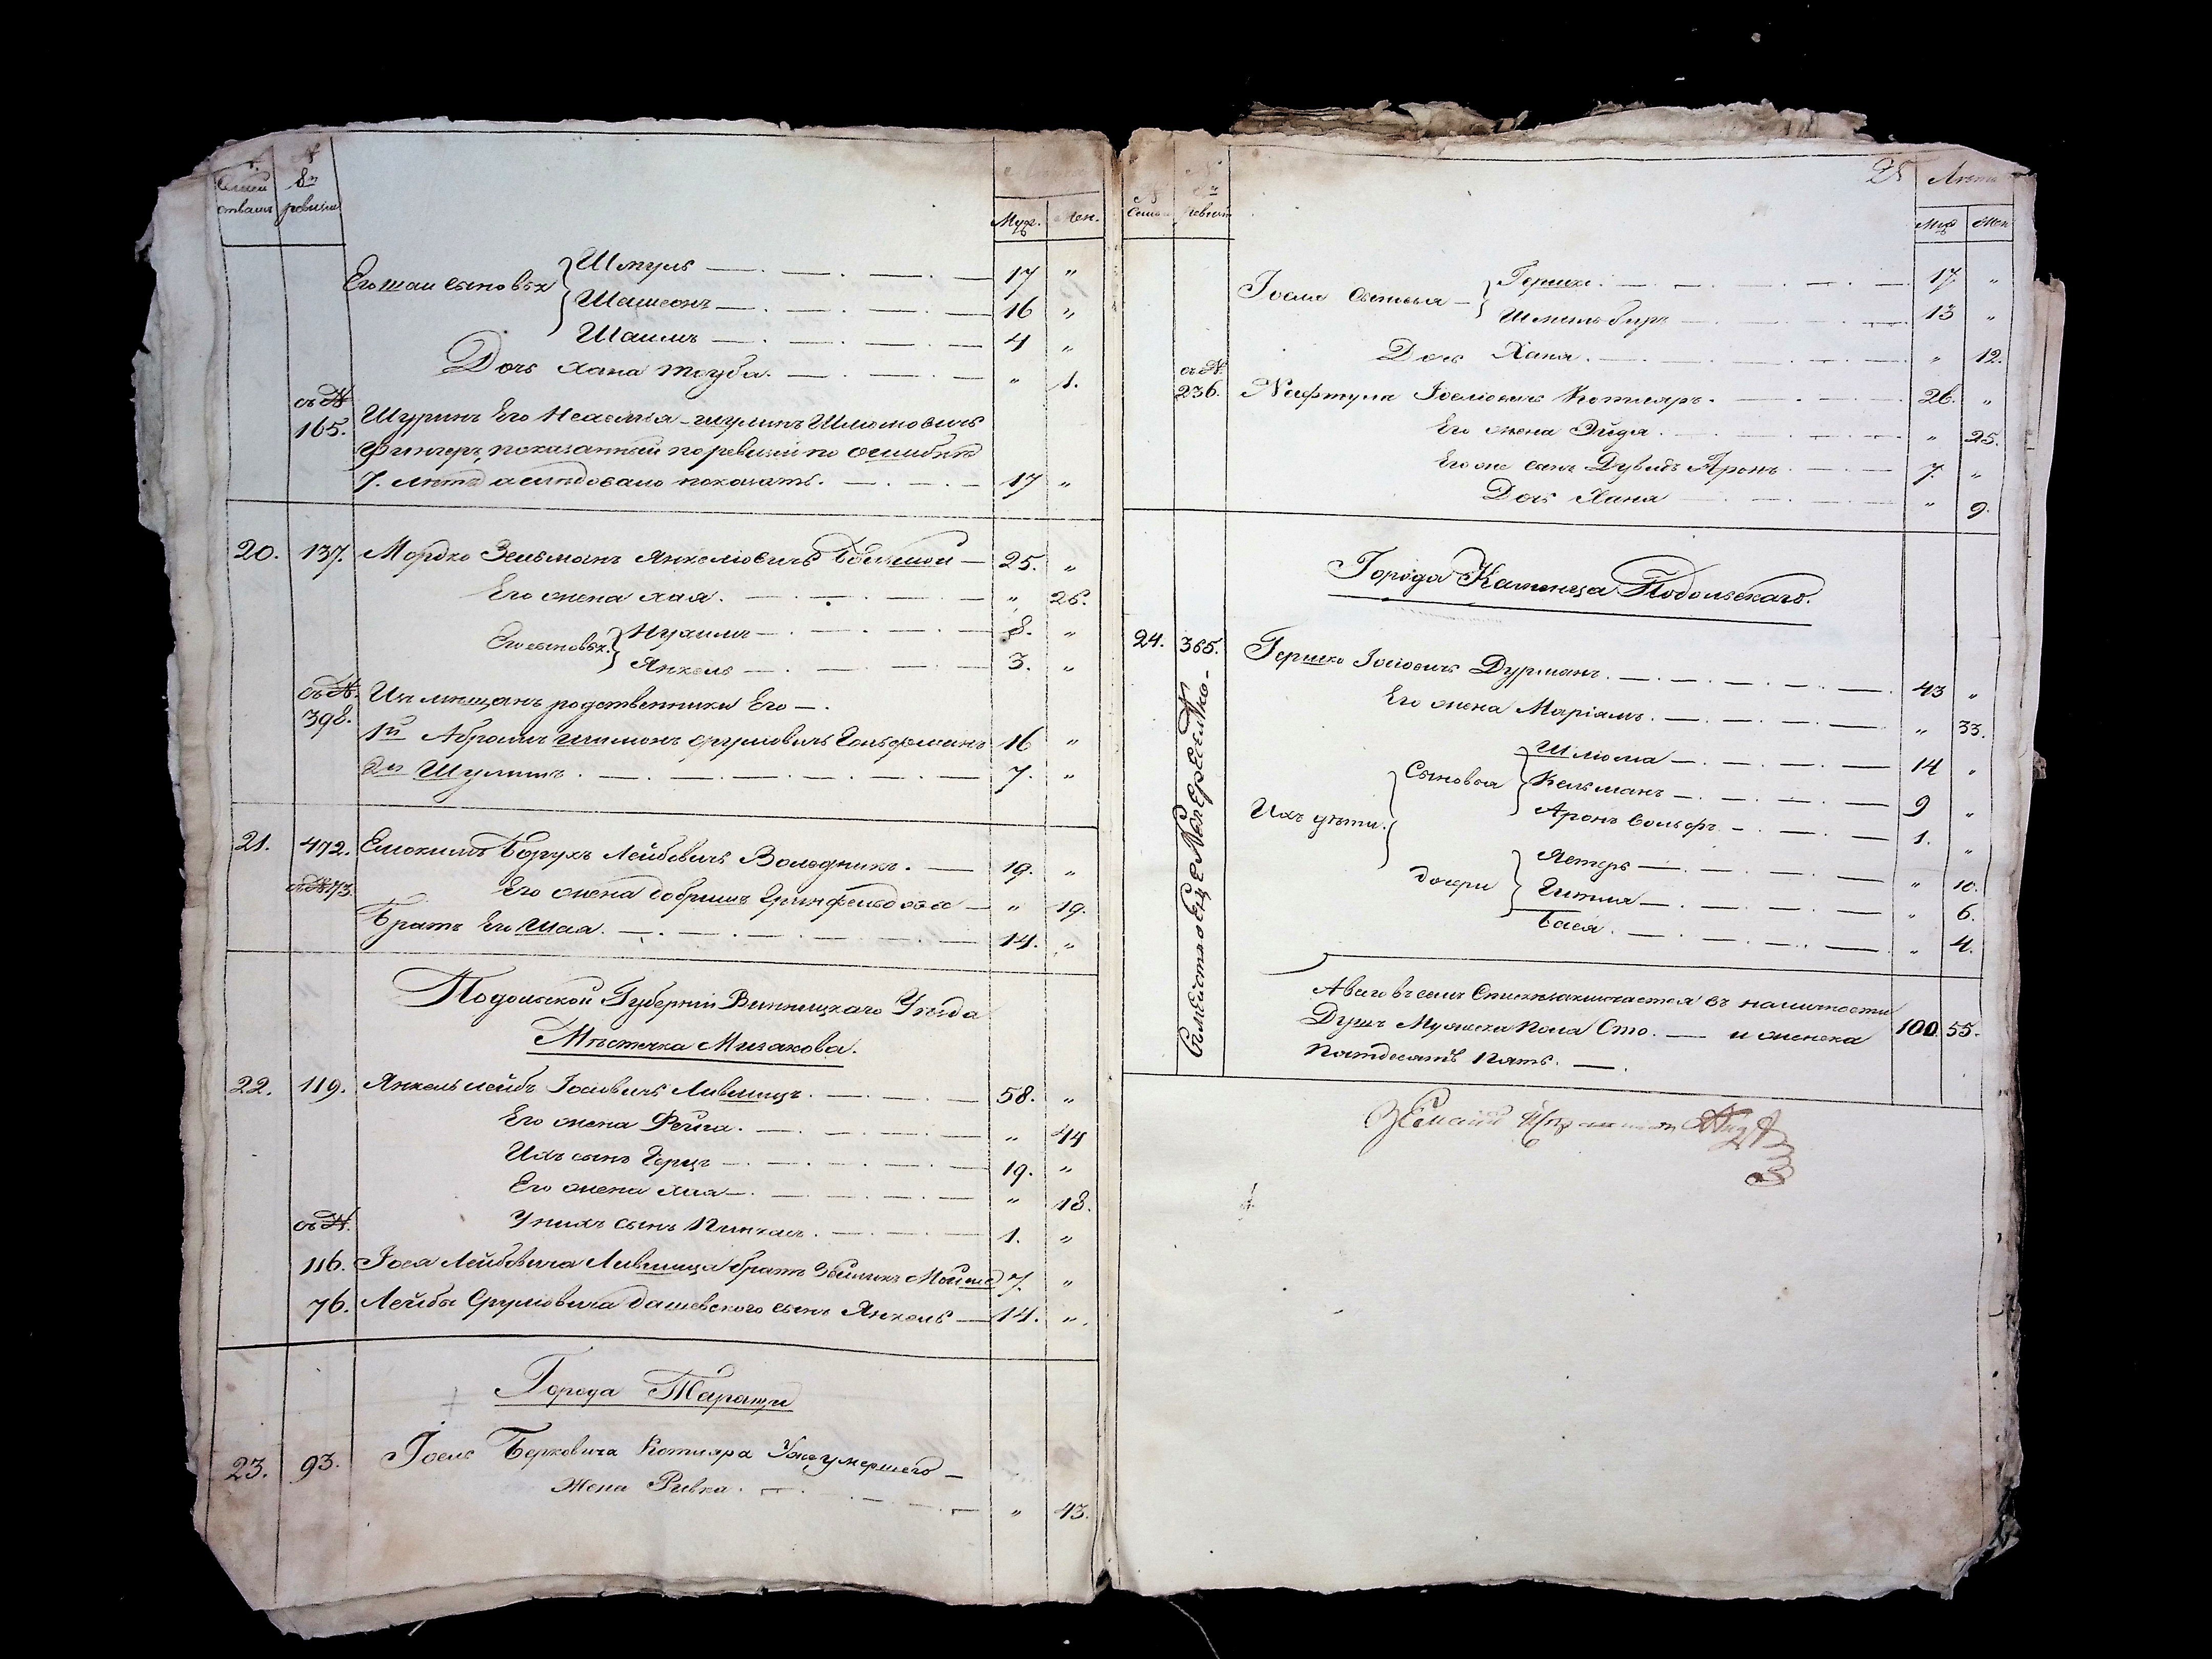 № Семей ствамъ
№ 8й ревизiи
Муж. Жен.
Его Шаи сыновья Шмуль 17 "
Шамсонъ 16 "
Шаимъ 4 "
Дочь Хана Тауба. " 1.
съ № 165. Шуринъ Его Нехемiя-шулимъ Шлiомовичь
Фингеръ, показанный по ревизiи по ошибкѣ
7. летъ а слѣдовало показать. 17 "
20. 137. Мордко Зельманъ Янкелiовичь 25. "
Его жена Хая. " 26.
Его сыновья. Нухимъ 8. "
Янкель 3. "
съ № 398. Изъ мещанъ родственники Его
1й Абрамъ Шимонъ Срулiовичь Гольдфельманъ 16 "
2й Шулимъ. 7. "
21. 472. Борухъ Лейбовичь Володникъ. 19. "
Его жена Добришъ Гринфельдова " 19.
съ № 473. Братъ Его Шая. 14. "
Подольской Губернiи Винницкаго Уезда
Мѣстечка Мизакова.
22. 119. Янкель лейбъ Iосiовичь Лившицъ. 58. "
Его жена Фейга. " 44
Ихъ сынъ Герцъ 19. "
Его жена Хая " 18.
У нихъ сынъ Пинхасъ. 1. "
съ №. 116. Iося Лейбовича Лившица братъ Мойше 7. "
76. Лейбы Срулiовича Дашевского сынъ Янкель 14. "
Города Таращи
23. 93. Iосель Берковича Котляра Уже умершего
Жена Ривка. " 43.
25
№ Семей
№ 8й ревизiи
Летъ
Муж Жен
Iоселя Сыновья Гершко. 17. "
Шмиль беръ 13 "
Дочь Хана. " 12.
съ № 236. Нафтула Iоселiовичь Котляръ. 26. "
Его жена Эйдя. " 25.
Его же сынъ Дувидъ Аронъ 7. "
Дочь Хана " 9.
Города Каменца Подольскаго.
24. 365. Гершко Iосiовичь Дурманъ. 43 "
Его жена Марiамъ. " 33.
Ихъ дѣти. Сыновья Шлiома 14 "
Кельманъ 9 "
Аронъ Вольфъ 1. "
Дочери Естеръ " 10.
Гитля " 6.
Бася. " 4.
А всего въ семъ Списке заключается въ наличности
Душъ Мужеска Пола Сто. и женска 100. 55.
Пятдесятъ Пять.